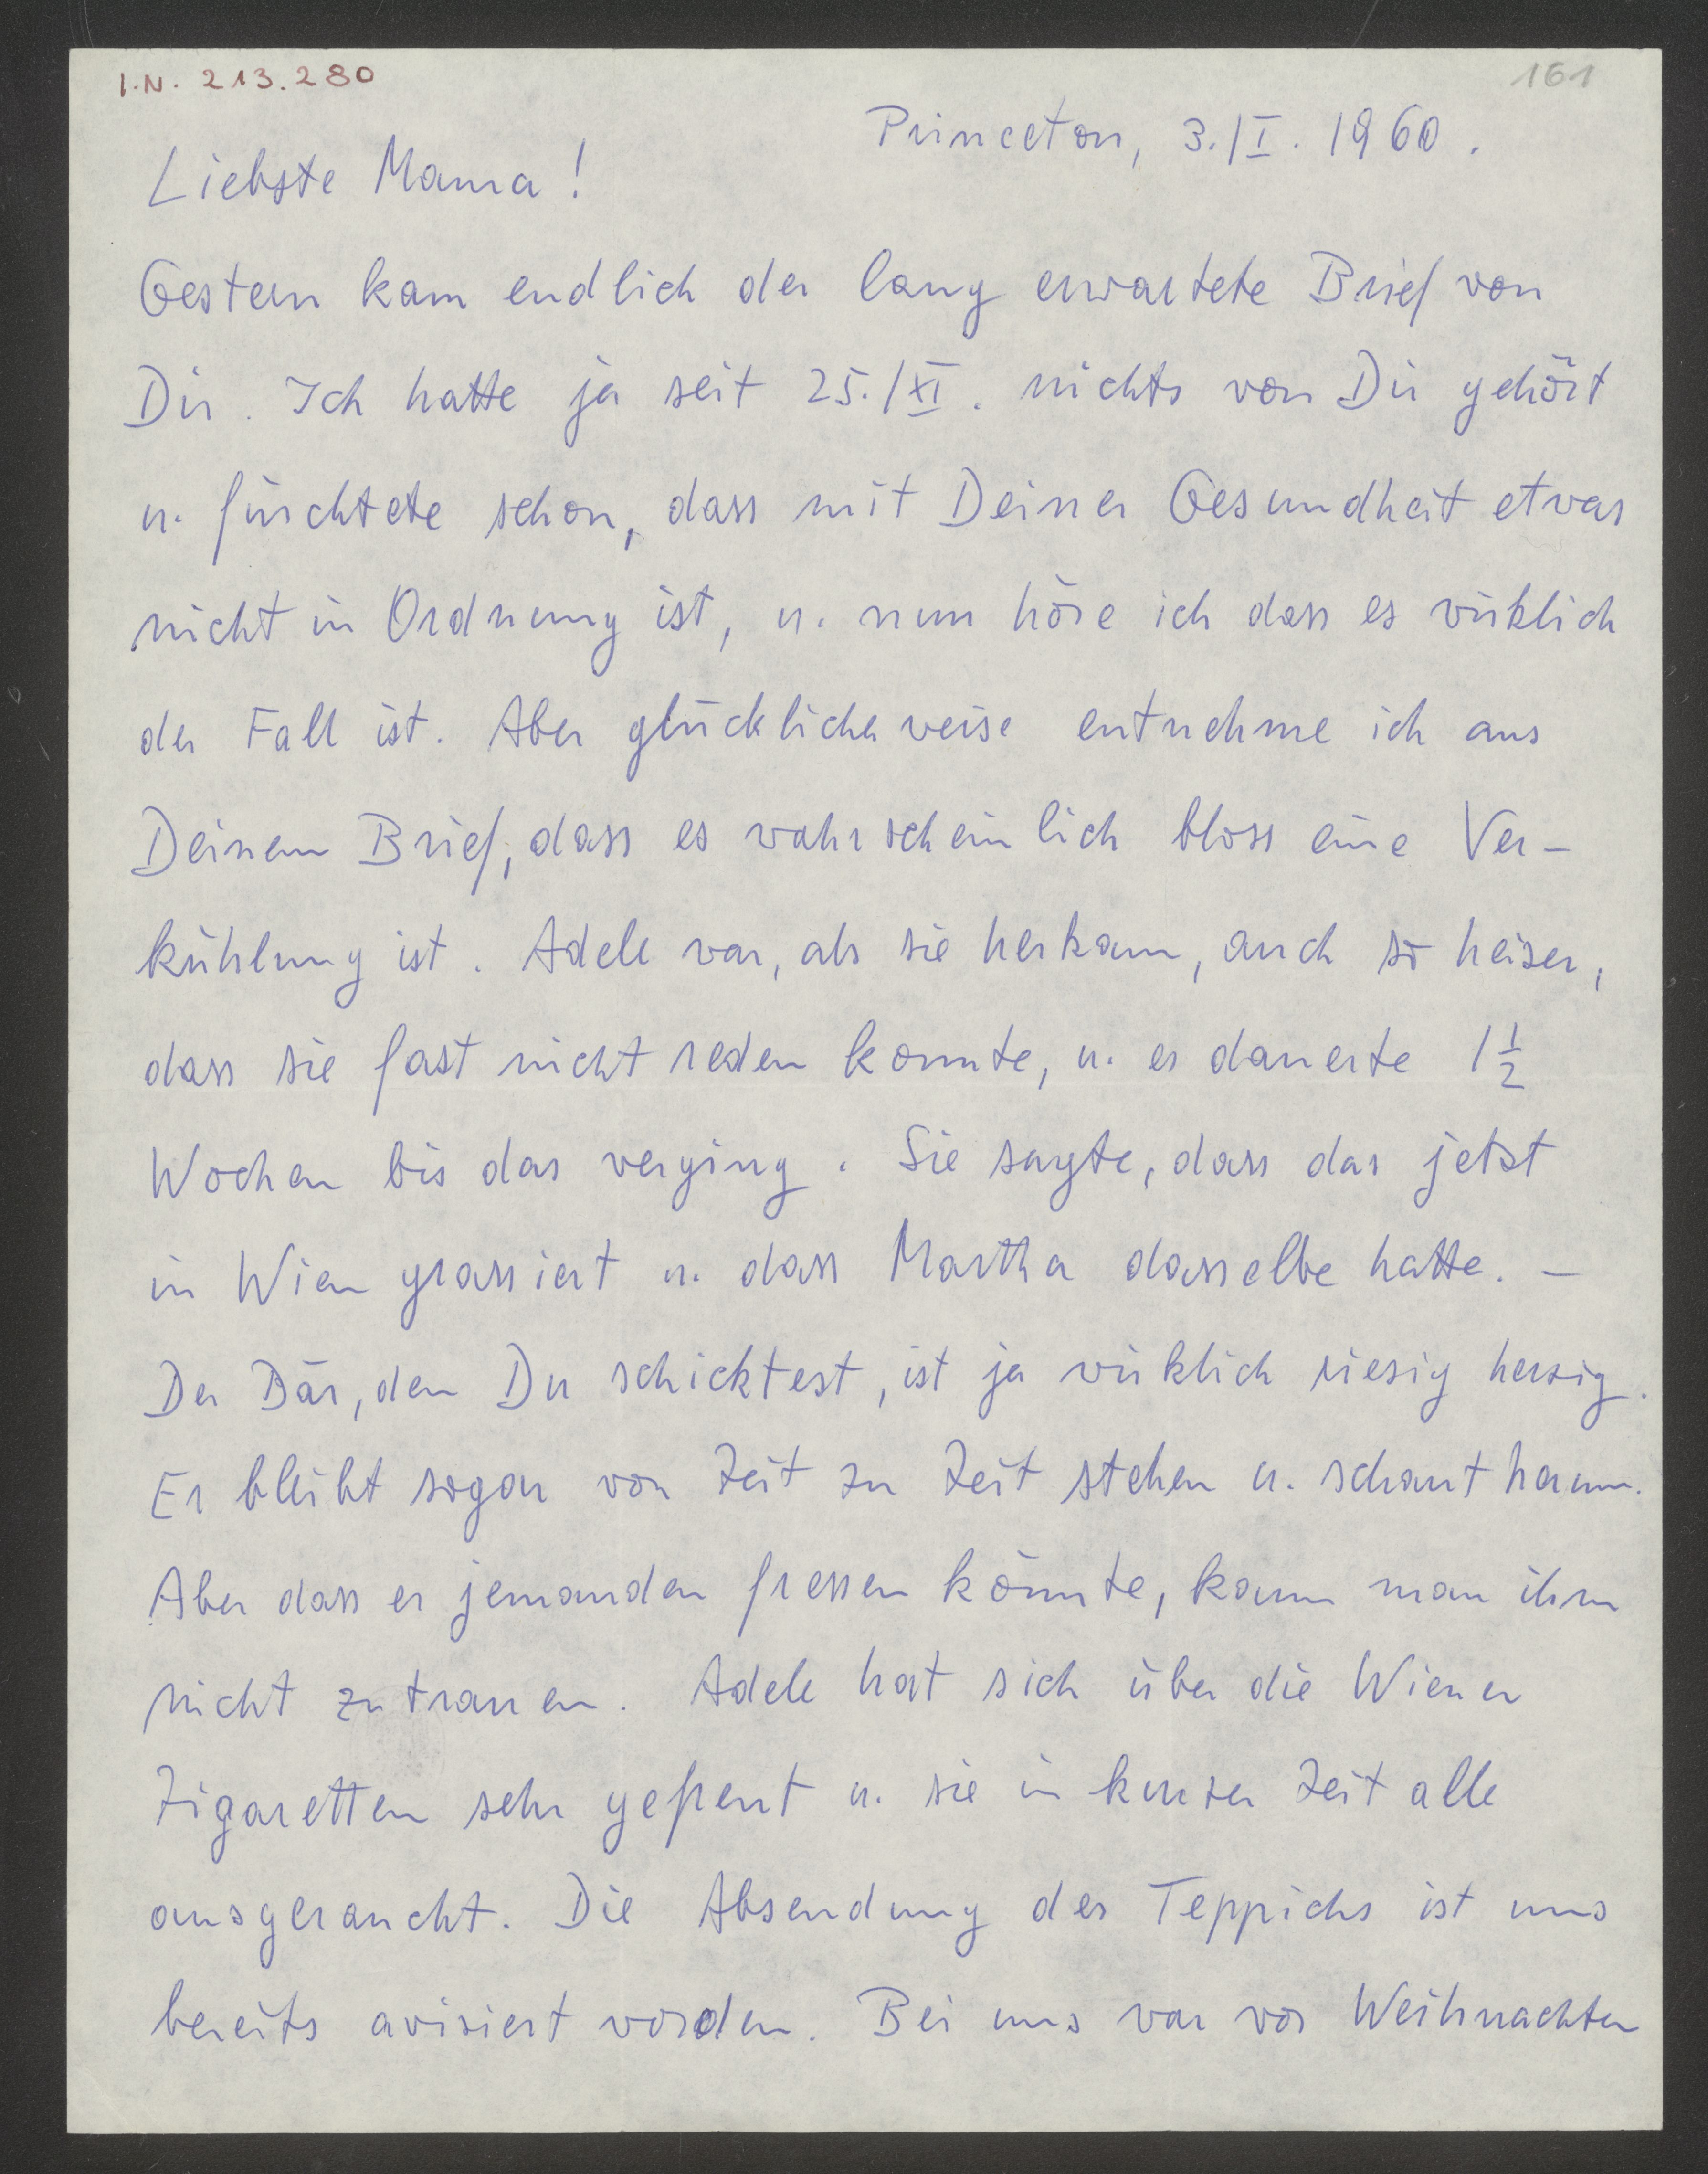 I.N. 213.280
161
Princeton, 3./I. 1960.
Liebste Mama!
Gestern kam endlich der lang erwartete Brief von
Dir. Ich hatte ja seit 25./XI. nichts von Dir gehört
u. fürchtete schon, dass mit Deiner Gesundheit etwas
nicht in Ordnung ist, u. nun höre ich dass es wirklich
der Fall ist. Aber glücklicherweise entnehme ich aus
Deinem Brief, dass es wahrscheinlich bloss eine Ver-
kühlung ist. Adele war, als sie herkam, auch so heiser,
dass sie fast nicht reden konnte, u. es dauerte 1½
Wochen bis das verging. Sie sagte, dass das jetzt
in Wien grassiert u. dass Martha dasselbe hatte. –
Der Bär, den Du schicktest, ist ja wirklich riesig herzig.
Er bleibt sogar von Zeit zu Zeit stehen u. schaut herum.
Aber dass er jemanden fressen könnte, kann man ihm
nicht zutrauen. Adele hat sich über die Wiener
Zigaretten sehr gefreut u. sie in kurzer Zeit alle
ausgeraucht. Die Absendung des Teppichs ist uns
bereits avisiert worden. Bei uns war vor Weihnachten